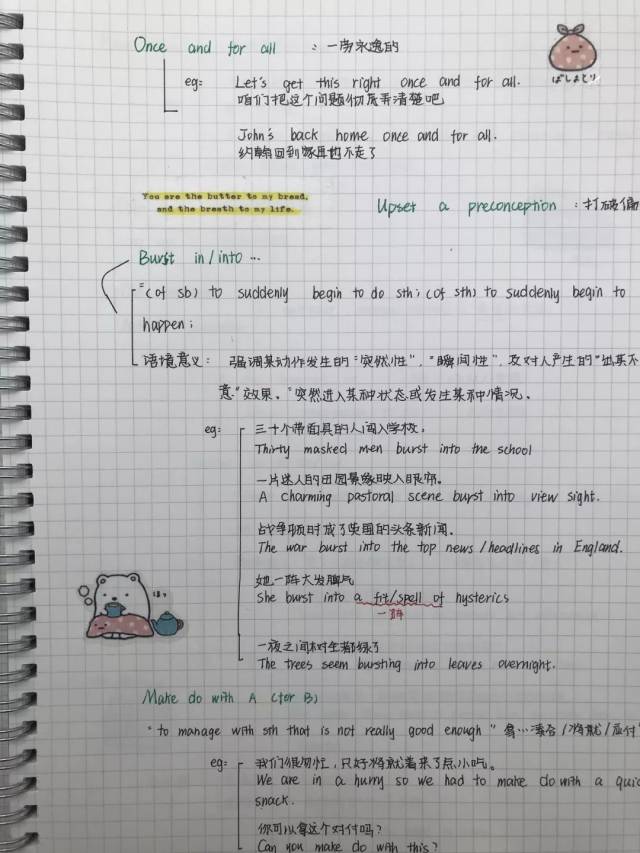 Once and for all : 一劳永逸的
ばしょとり
eg: Let's get this right once and for all.
咱们把这个问题彻底弄清楚吧
John's back home once and for all.
约翰回到家再也不走了
You are the butter to my bread,
and the breath to my life.
Upset a preconception : 打破偏
Burst in/into ...
"(of sb) to suddenly begin to do sth; (of sth) to suddenly begin to
happen;
语境意义: 强调某动作发生的"突然性", "瞬间性", 及对人产生的"出其不
意"效果, "突然进入某种状态或发生某种情况.
eg: 三十个带面具的人闯入学校.
Thirty masked men burst into the school
一片迷人的田园景象映入眼帘.
A charming pastoral scene burst into view sight.
战争顿时成了英国的头条新闻.
The war burst into the top news/headlines in England.
她一阵大发脾气
She burst into a fit/spell of hysterics
一阵
一夜之间树全都绿了
The trees seem bursting into leaves overnight.
Make do with A (for B)
"to manage with sth that is not really good enough" 拿…凑合/将就/应付"
eg: 我们很匆忙, 只好将就着来了点小吃.
We are in a hurry so we had to make do with a quic
snack.
你可以拿这个对付吗?
Can you make do with this?